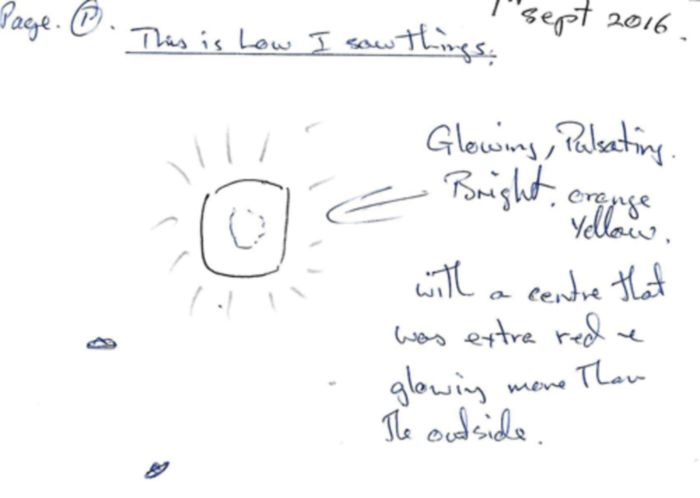 Page. ①.
1st Sept 2016.
This is how I saw things.
Glowing, Pulsating.
Bright. orange
Yellow.
with a centre that
was extra red &
glowing more than
the outside.